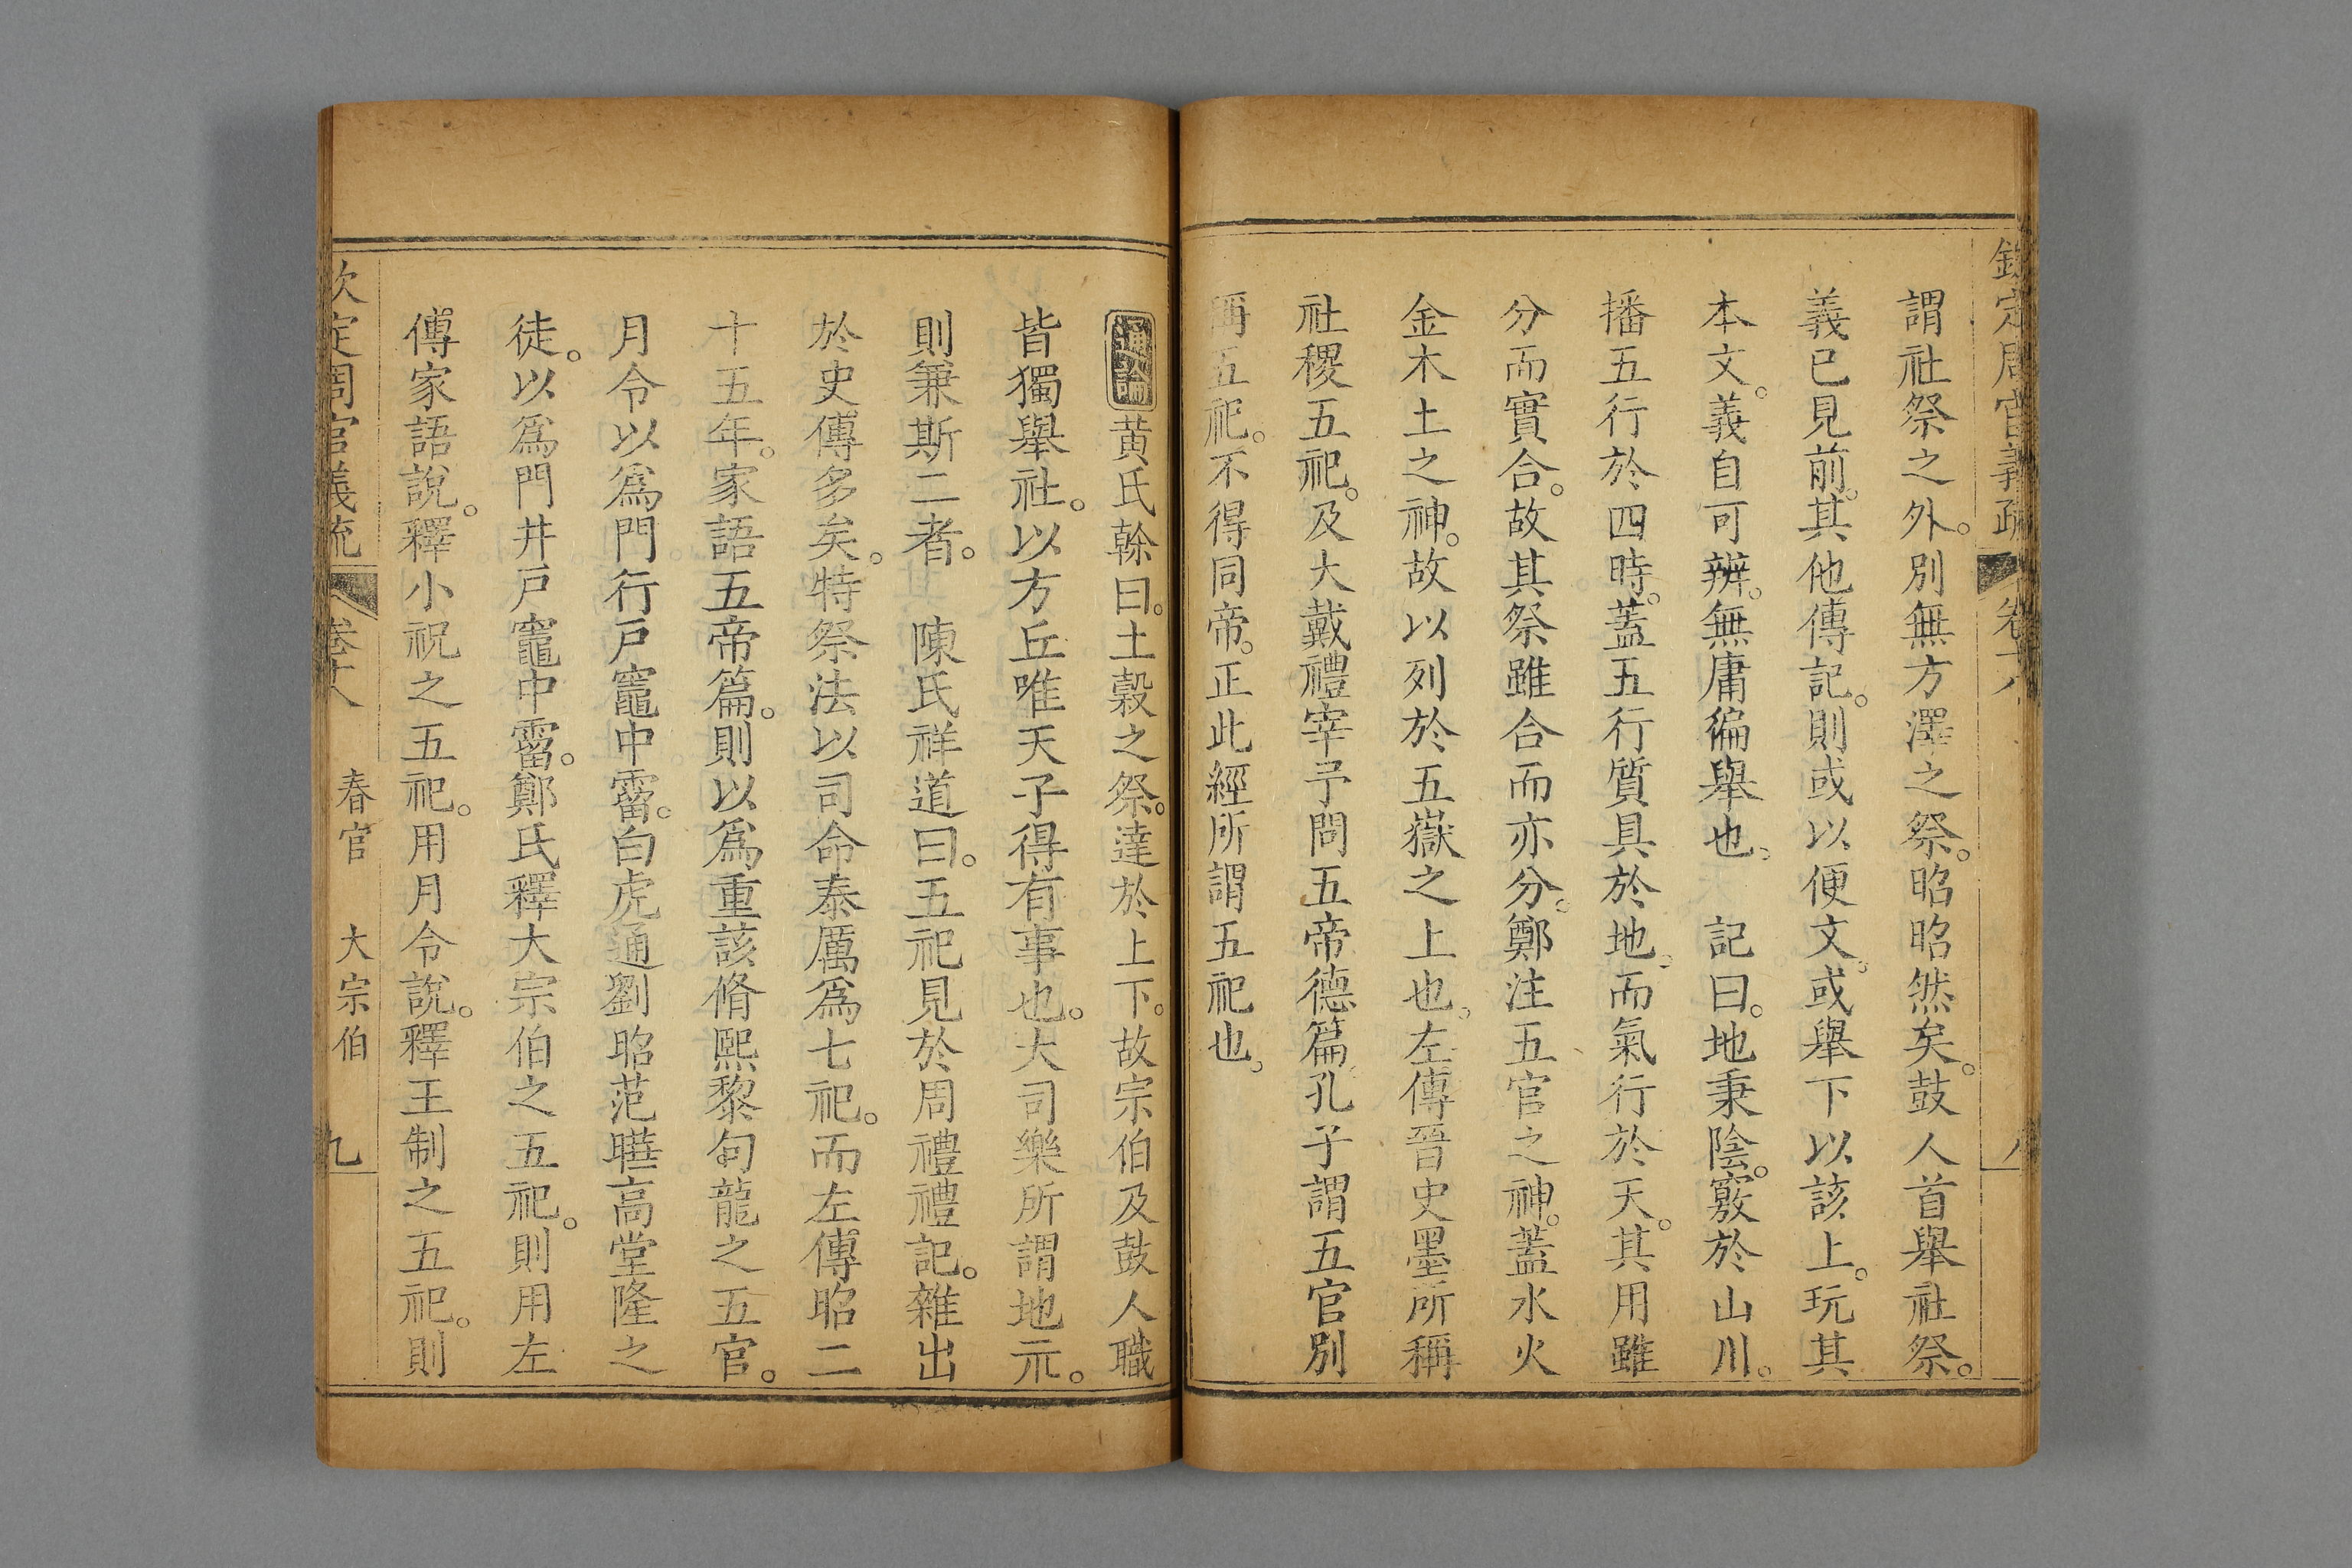 欽定周官義疏 卷十八 八
謂社祭之外。別無方澤之祭。昭昭然矣。鼓人首舉社祭。
義已見前。其他傳記。則或以便文。或舉下以該上。玩其
本文。義自可辨。無庸徧舉也。 記曰。地秉陰。竅於山川。
播五行於四時。蓋五行質具於地。而氣行於天。其用雖
分而實合。故其祭雖合而亦分。鄭注五官之神。蓋水火
金木土之神。故以列於五嶽之上也。左傳晉史墨所稱
社稷五祀。及大戴禮宰予問五帝德篇孔子謂五官別
稱五祀。不得同帝。正此經所謂五祀也。
通論黃氏榦曰。土穀之祭。達於上下。故宗伯及鼓人職
皆獨舉社。以方丘唯天子得有事也。大司樂所謂地示。
則兼斯二者。 陳氏祥道曰。五祀見於周禮禮記。雜出
於史傳多矣。特祭法以司命泰厲爲七祀。而左傳昭二
十五年。家語五帝篇。則以爲重該脩熙黎句龍之五官。
月令以爲門行戸竈中霤。白虎通劉昭范曄高堂隆之
徒。以爲門井戸竈中霤。鄭氏釋大宗伯之五祀。則用左
傳家語說。釋小祝之五祀。用月令說。釋王制之五祀。則
欽定周官義疏 卷十八 春官 大宗伯 九